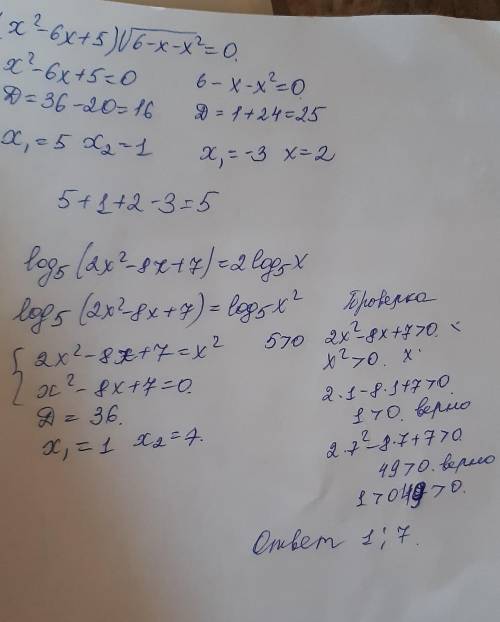 (x²-6x+5)√6-x-x²=0.
x²-6x+5=0 6-x-x²=0
D=36-20=16 D=1+24=25
x₁=5 x₂=1 x₁=-3 x=2
5+1+2-3=5
log₅(2x²-8x+7)=2log₅x
log₅(2x²-8x+7)=log₅x²
{ 2x²-8x+7=x² 5>0
x²-8x+7=0.
D=36.
x₁=1 x₂=7.
Проверка
2x²-8x+7>0.
x²>0. x
2·1-8·1+7>0.
1>0. верно
2·7²-8·7+7>0
49>0. верно
1>0 49>0.
Ответ 1; 7.